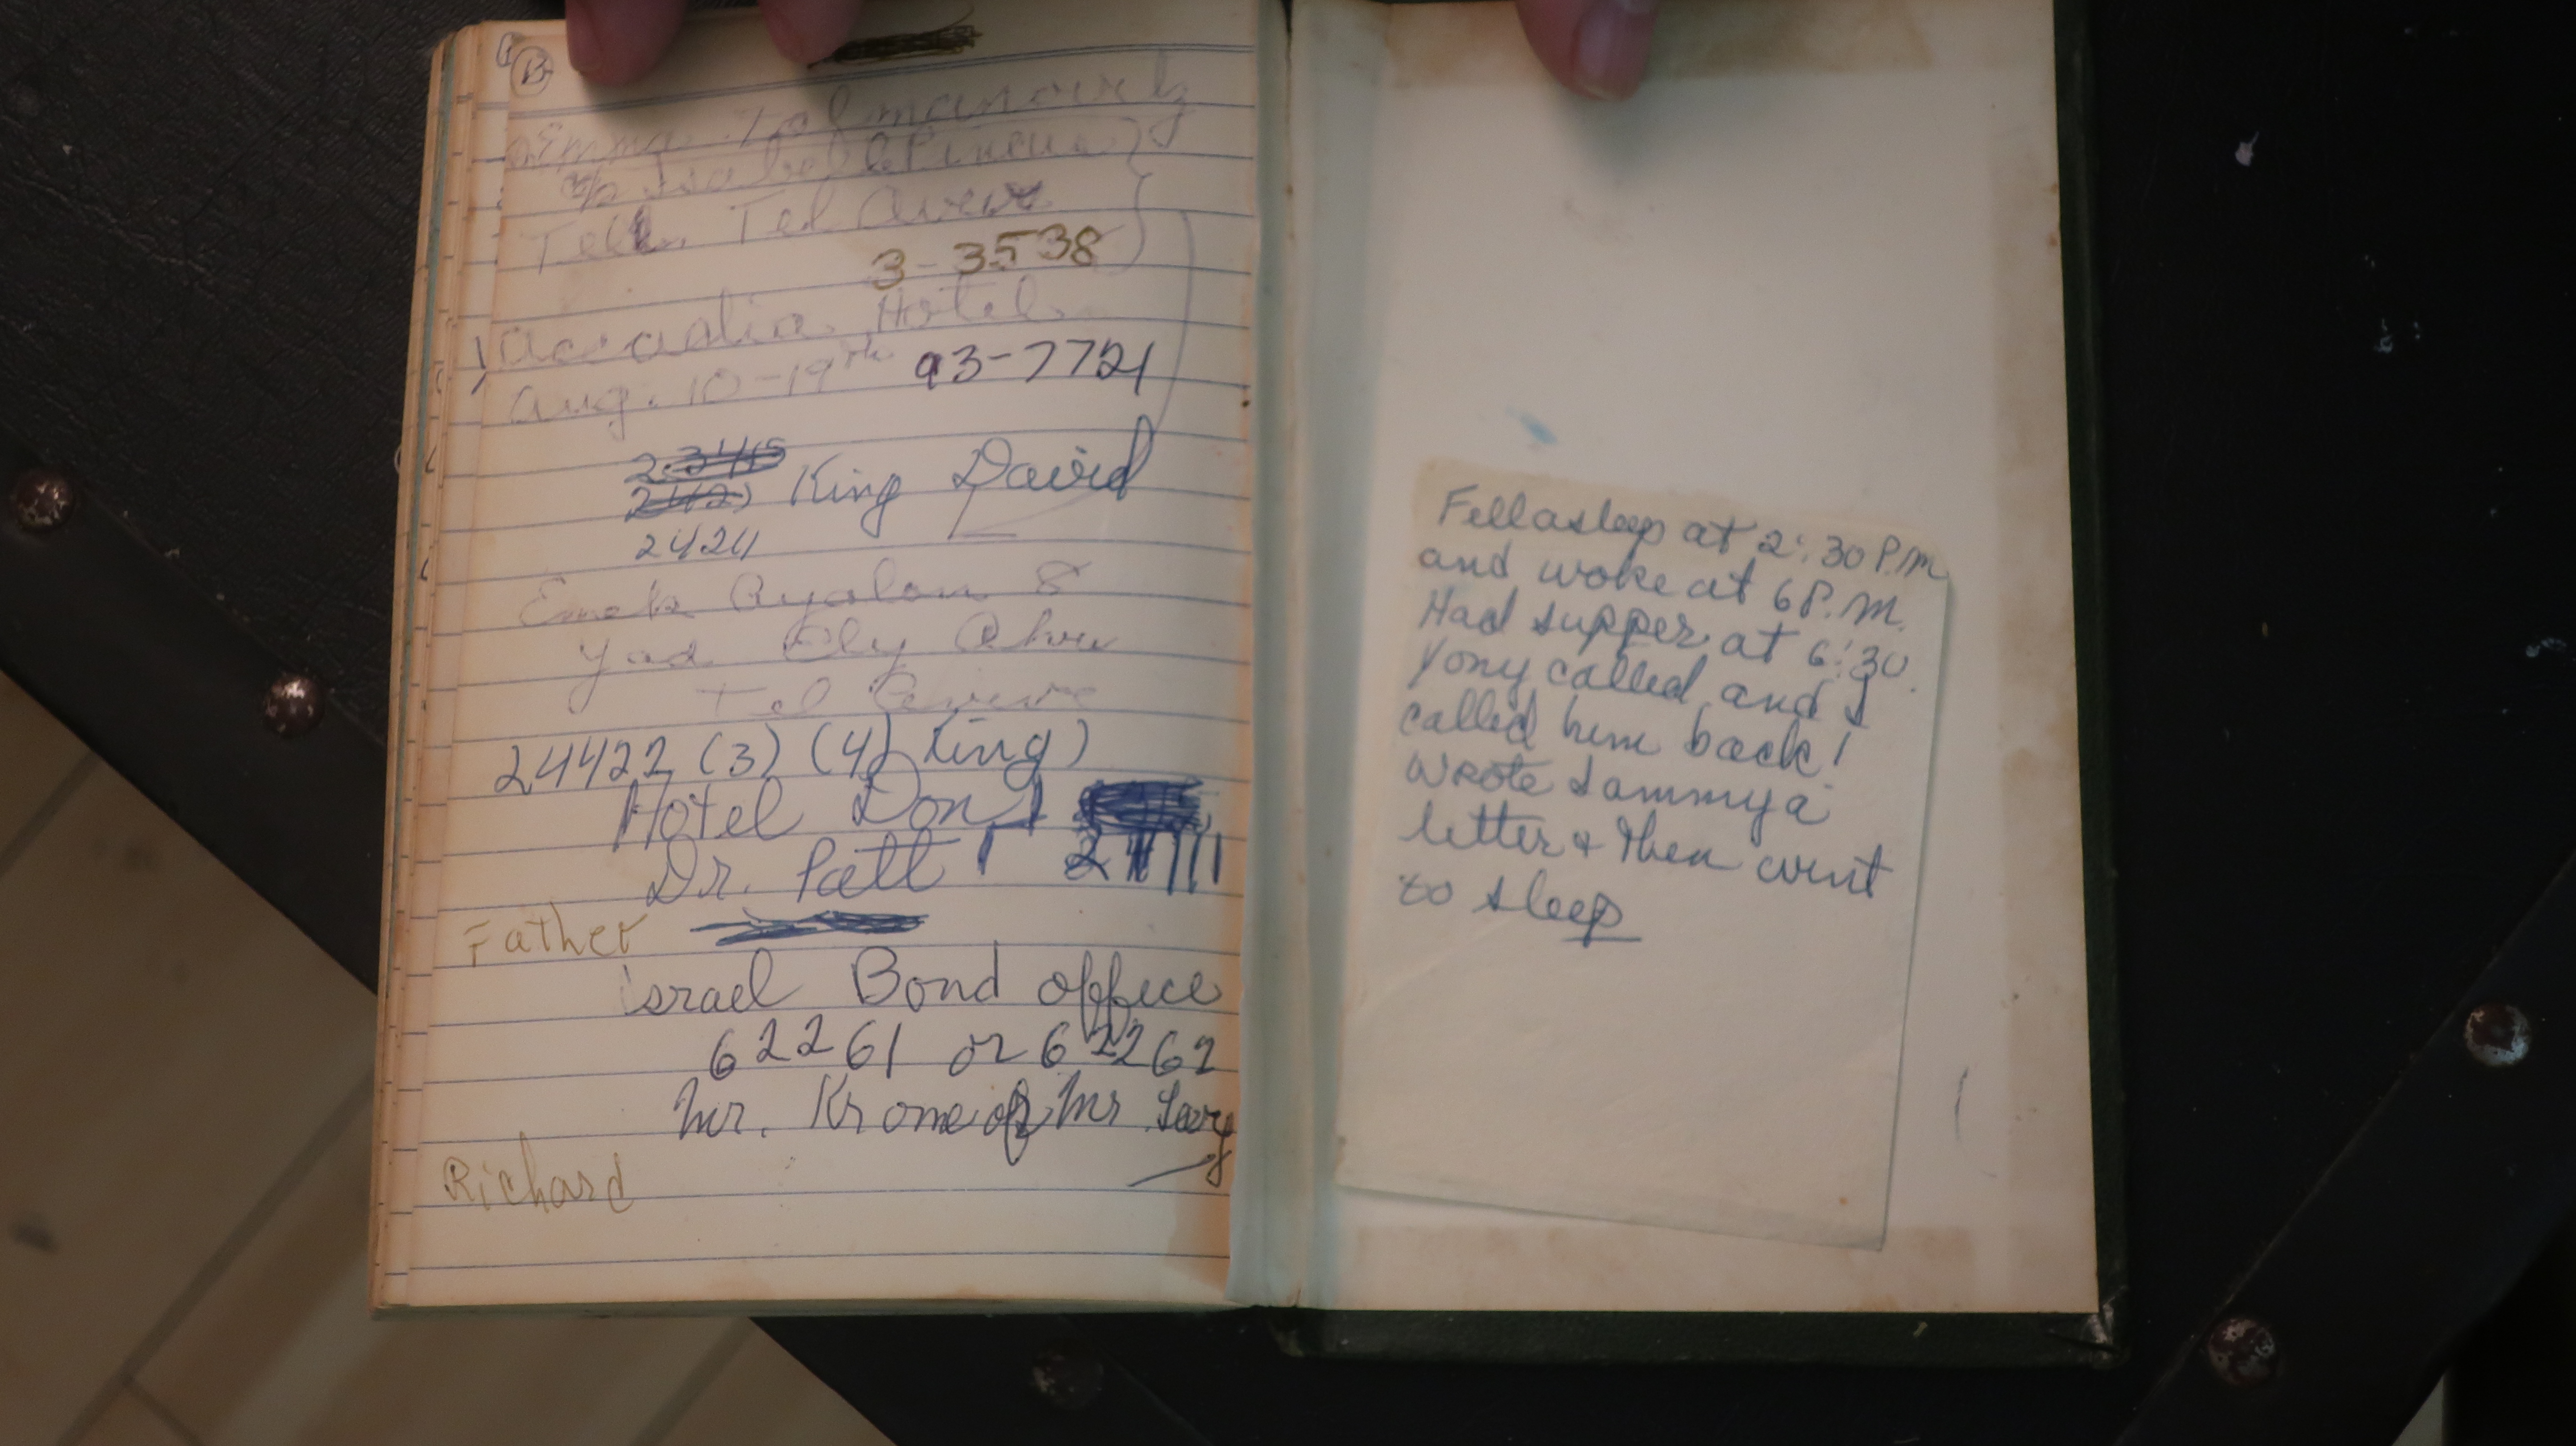 B
Emma
c/o Isabel Pincus
Tel. Tel Aviv
3-3538
Accadia Hotel
Aug. 10-19th 93-7721
King David
2424
Emek Ayalon 8
Yad Ely Ahu
Tel Aviv
24422 (3) (4) King)
Hotel Don
Dr. Patt
Father
Israel Bond office
62261 or 62262
Mr. Krone or Mr
Richard
Fell asleep at 2:30 P.M
and woke at 6 P.M.
Had supper at 6:30.
Yony called and I
called him back!
Wrote Sammy a
letter & then went
to sleep